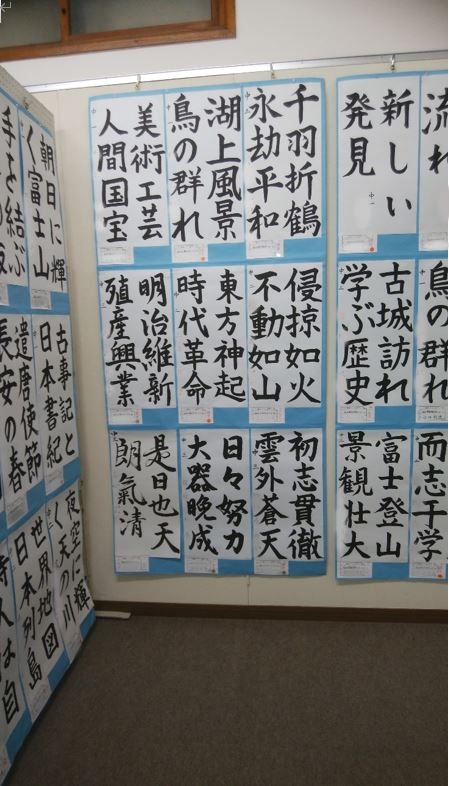 千羽折鶴
永劫平和
湖上風景
鳥の群れ
美術工芸
人間国宝
侵掠如火
不動如山
東方神起
時代革命
明治維新
殖産興業
初志貫徹
雲外蒼天
日々努力
大器晩成
是日也天
朗氣清
流れ
新しい
発見
鳥の群れ
古城訪れ
学ぶ歴史
而志于学
富士登山
景観壮大
朝日に輝
く富士山
手を結ぶ
古事記と
日本書紀
遣唐使節
長安の春
夜空に輝
く天の川
世界地図
日本列島